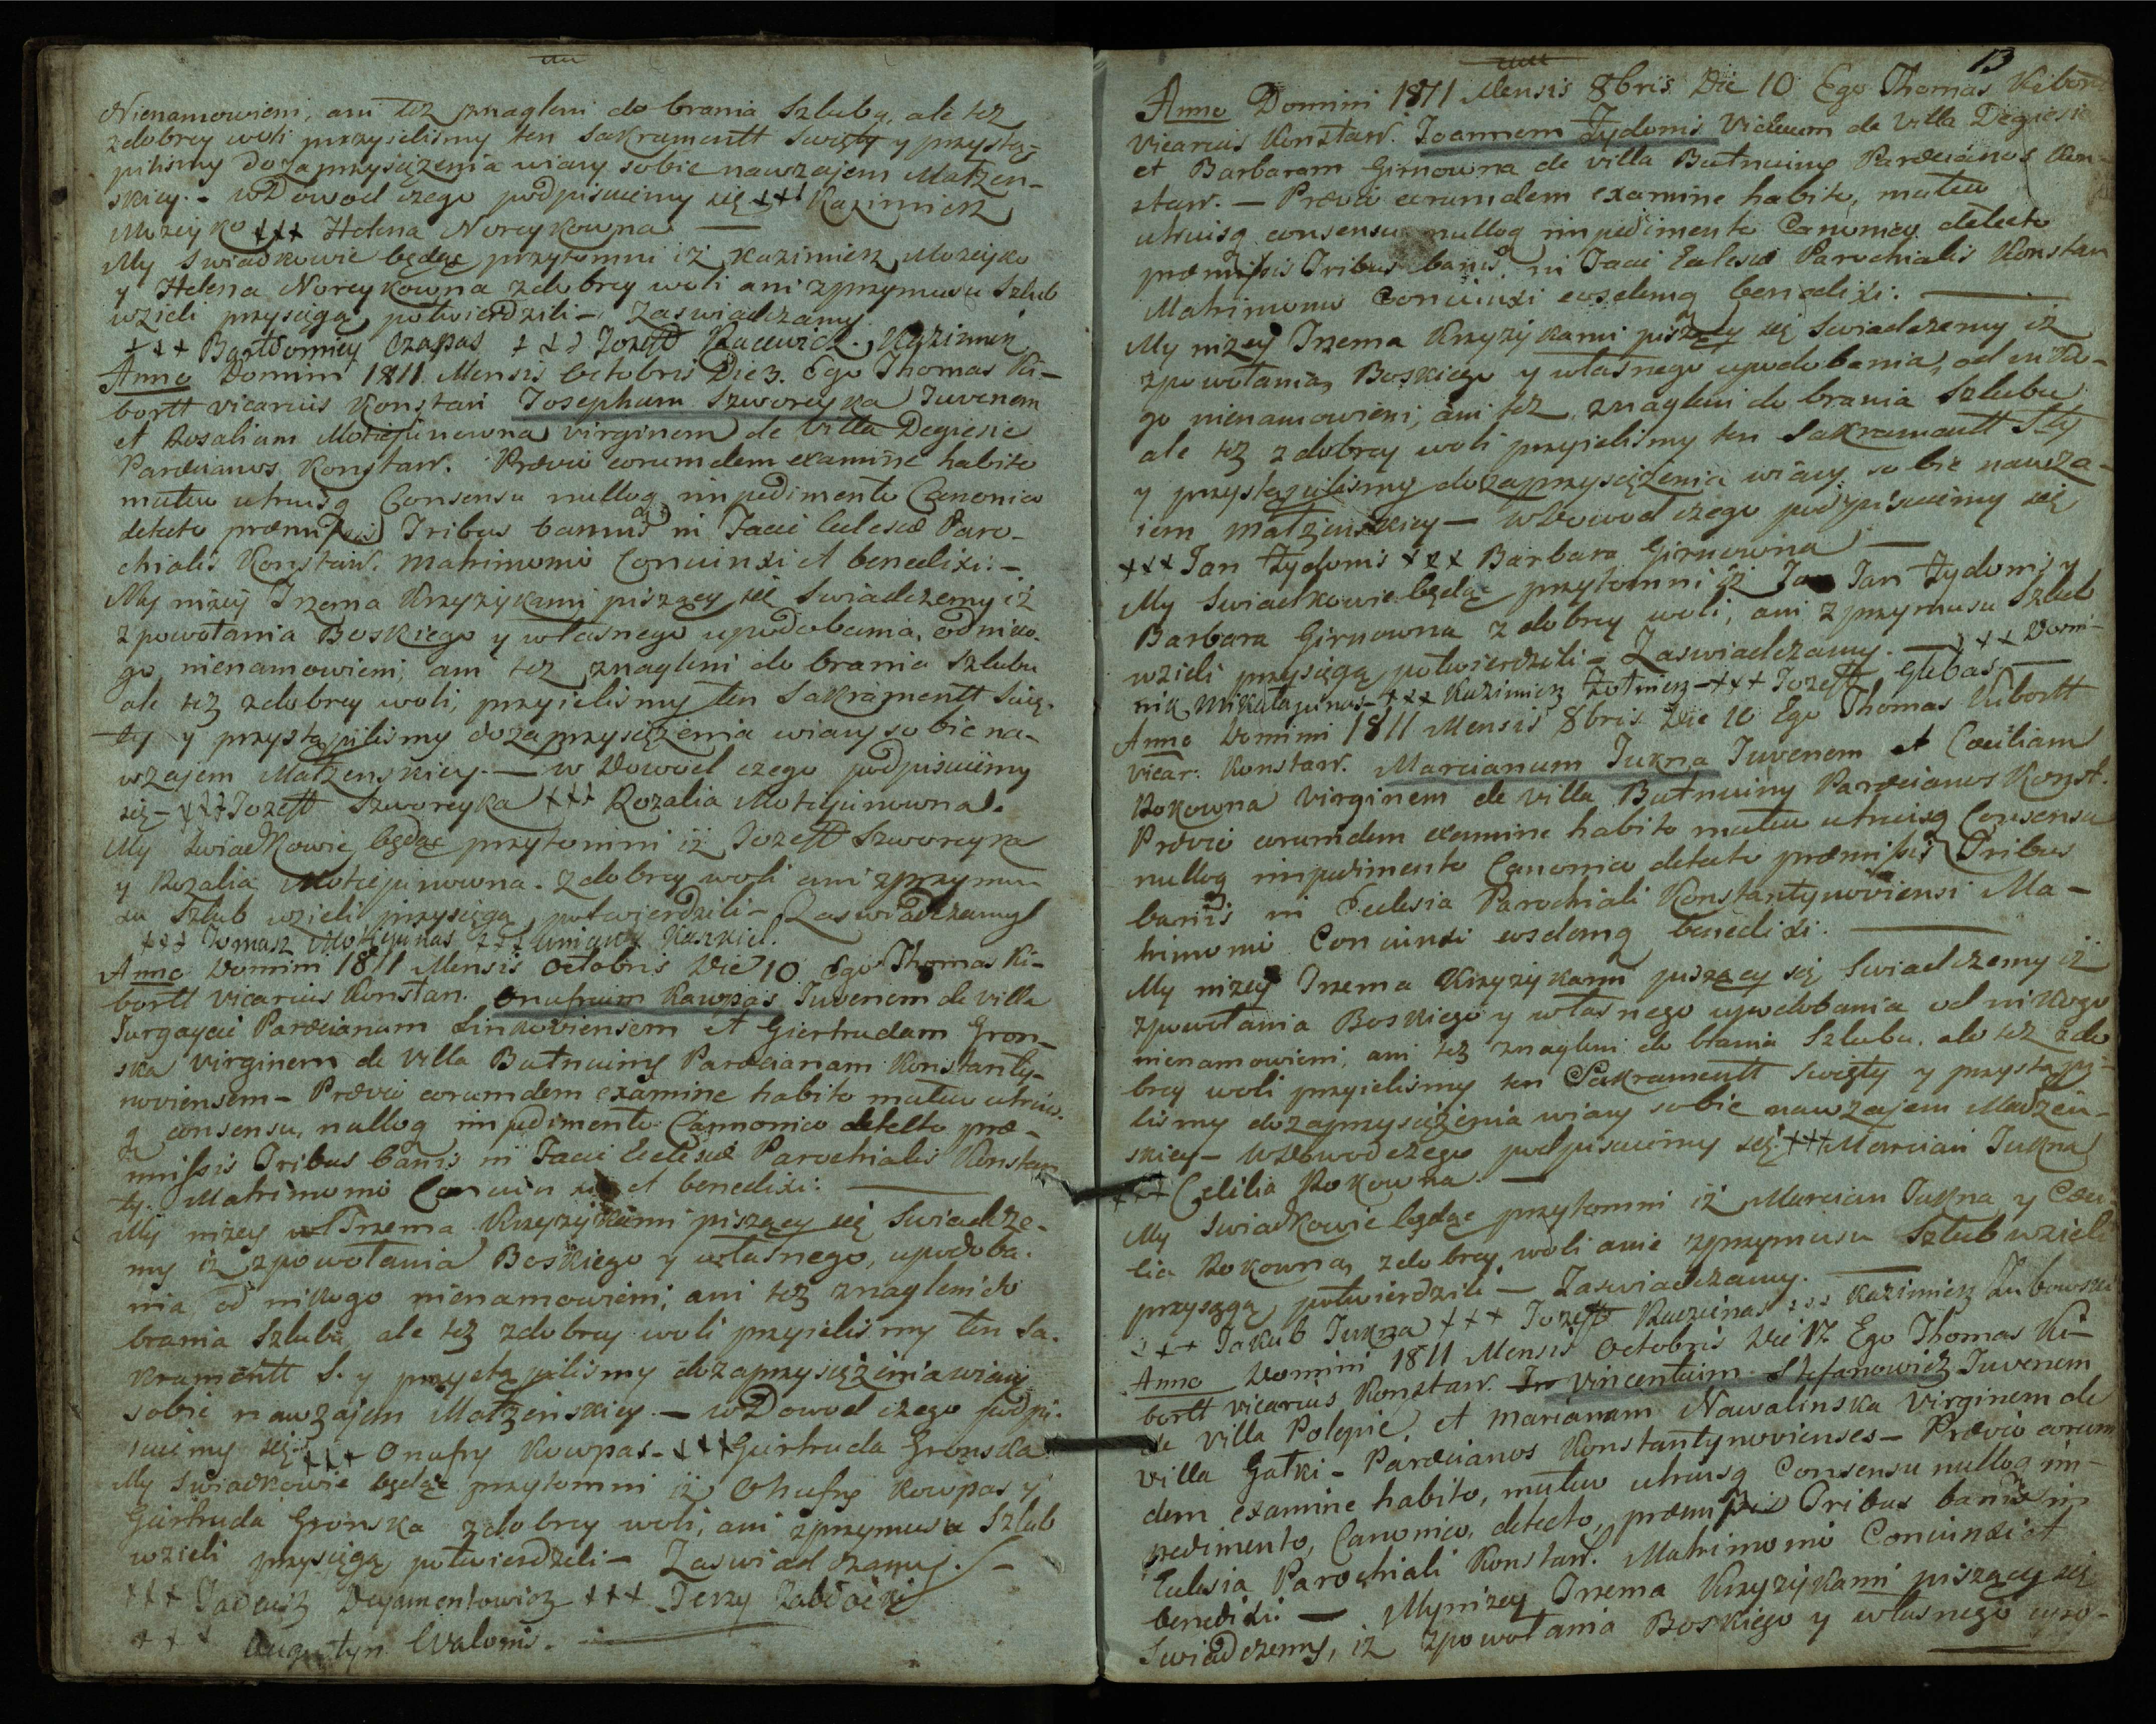 Nienamowieni, ani też znagleni do brania Szlubu, ale też
zdobrey woli przyieliśmy ten Sakramentt Swięty y przystą-
piliśmy do zaprzysiężenia wiary sobie nawzajem Małżen-
skiey. - w Dowod czego podpisuiemy się +++ Kazimierz
Mozeyko +++ Helena Noreykowna —
My Swiadkowie będąc przytomni iż Kazimierz Mozeyko
y Helena Noreykowna zdobrey woli ani zprzymusu Szlub
wzieli przysięgą potwierdzili - Zaswiadczamy
+++ Bartłomiey Czapas +++ Jozeff Kazimierz
Anno Domini 1811 Mensis Octobris Die 3. Ego Thomas Ki-
bortt vicarius Konstan Josephum Szworeyka Juvenem
et Rosaliam Moteijunowna virginem de Villa Degiesie
Parœcianos Konstaw. Prævio eorumdem examine habito
mutuo utriusq Consensu nulloq impedimento Canonico
detecto præmissis Tribus bannis in Facie Eclesiæ Paro-
chialis Konstaw. Matrimonio Coniunxi et benedixi: -
My niżey Trzema Krzyżykami piszący się Swiadczemy iż
zpowołania Boskiego y własnego upodobania, od niko-
go nienamowieni, ani też znagleni do brania Szlubu
ale też zdobrey woli, przyieliśmy ten Sakramentt Swię-
ty y przystąpiliśmy dozaprzysiężenia wiary sobie na-
wzajem Małżenskiey. — w Dowod czego podpisuiemy
się - +++ Jozeff Szworeyka +++ Rozalia Moteyunowna.
My Swiadkowie będąc przytomni iż Jozeff Szworeyka
y Rozalia Moteijunowna. Zdobrey woli ani zprzymu-
su Szlub wzieli przysięgą potwierdzili - Zaswiadczamy
+++ Tomasz Moteyunas +++ Kaszkiel.
Anno Domini 1811 Mensis Octobris Die 10 Ego Thomas Ki-
bortt vicarius Konstan. Onufrium Kawpas Juvenem de villa
Surgaycie Parœcianum Linkoviensem et Giertrudam Gron-
ska virginem de Villa Butnuiny Parœcianam Konstanty-
noviensem - Prævio eorumdem examine habito mutuo utrius-
q consensu, nulloq impedimento Cannonico detecto præ-
missis Tribus banis in Facie Eclesiæ Parochialis Konstan
ty. Matrimonio Coniunxi et benedixi: —
My niżey Trzema Krzyżykami piszący się Swiadcze-
my iż zpowołania Boskiego y własnego, upodoba-
nia od nikogo nienamowieni, ani też znagleni do
brania Szlubu, ale też zdobrey woli przyieliśmy ten Sa-
kramentt S. y przystąpiliśmy dozaprzysiężenia wiary
sobie nawzajem Małżenskiey. — w Dowod czego podpi-
suiemy się. +++ Onufry Kowpas - +++ Giertruda Gronska
My Swiadkowie będąc przytomni iż Onufry Kowpas y
Giertruda Gronska zdobrey woli, ani zprzymusu Szlub
wzieli przysięgą potwierdzili - Zaswiadczamy. -
+++ Tadeusz Dujamentowicz +++ Jerzy Zabłocki
+++ Augustyn Walonis. —
13
Anno Domini 1811 Mensis 8bris Die 10 Ego Thomas Kibortt
vicarius Konstaw. Joannem Żydonis Viduum de Villa Degiesie
et Barbaram Girnowna de villa Butnuiny Parœcianos Kon-
staw. — Prævio eorumdem examine habito, mutuo
utriusq consensu nulloq impedimento Canonico detecto
præmissis Tribus banis, in Facie Eclesiæ Parochialis Konstan
Matrimonio Coniunxi eosdemq benedixi: —
My niżey Trzema Krzyżykami piszący się Swiadczemy iż
zpowołania Boskiego y własnego upodobania, od niko-
go nienamowieni, ani też znagleni do brania Szlubu
ale też zdobrey woli przyieliśmy ten Sakramentt Sty
y przystąpiliśmy dozaprzysiężenia wiary sobie nawza-
iem małżenskiey — w Dowod czego podpisuiemy się
+++ Jan Żydonis +++ Barbara Girnowna —
My Swiadkowie będąc przytomni iż Jan Żydonis y
Barbara Girnowna zdobrey woli, ani zprzymusu Szlub
wzieli przysięgą potwierdzili - Zaswiadczamy. — +++ Domi-
nik Mikałajunas - +++ Kazimierz Żołnierz - +++ Jozeff Glebas —
Anno Domini 1811 Mensis 8bris Die 10 Ego Thomas Kibortt
vicar: Konstaw. Marcianum Jukna Juvenem et Cæciliam
Rokowna Virginem de villa Butnuiny Parœcianos Konst.
Prævio eorumdem examine habito mutuo utriusq Consensu
nulloq impedimento Canonico detecto præmissis Tribus
banis in Eclesia Parochiali Konstantynoviensi Ma-
trimonio Coniunxi eosdemq benedixi: —
My niżey Trzema Krzyżykami piszący się Swiadczemy iż
zpowołania Boskiego y własnego upodobania od nikogo
nienamowieni, ani też znagleni do brania Szlubu. ale też zdo
brey woli przyieliśmy ten Sakramentt Swięty y przystąpi-
liśmy dozaprzysiężenia wiary sobie nawzajem Małżen-
skiey - w Dowod czego podpisuiemy się +++ Marcian Jukna
+++ Celilia Rokowna. —
My Swiadkowie będąc przytomni iż Marcian Jukna y Cæci-
lia Rokowna, zdobrey woli anie zprzymusu Szlub wzieli
przysęgą potwierdzili — Zaswiadczamy. —
+++ Jakub Jukna +++ Jozeff Raczunas +++ Kazimierz Dubowski
Anno Domini 1811 Mensis Octobris Die 17. Ego Thomas Ki-
bortt vicarius Konstaw. Vincentium Stefanowicz Juvenem
de villa Polepie, et Mariannam Nawalinska Virginem de
villa Gałki - Parœcianos Konstantynovienses - Prævio eorum
dem examine habito, mutuo utriusq Consensu nulloq im-
pedimento, Canonico, detecto, præmissis Tribus banis in
Eclesia Parochiali Konstaw. Matrimonio Coniunxi et
benedixi: — My niżey Trzema Krzyżykami piszący się
Swiadczemy, iż zpowołania Boskiego y własnego upo-